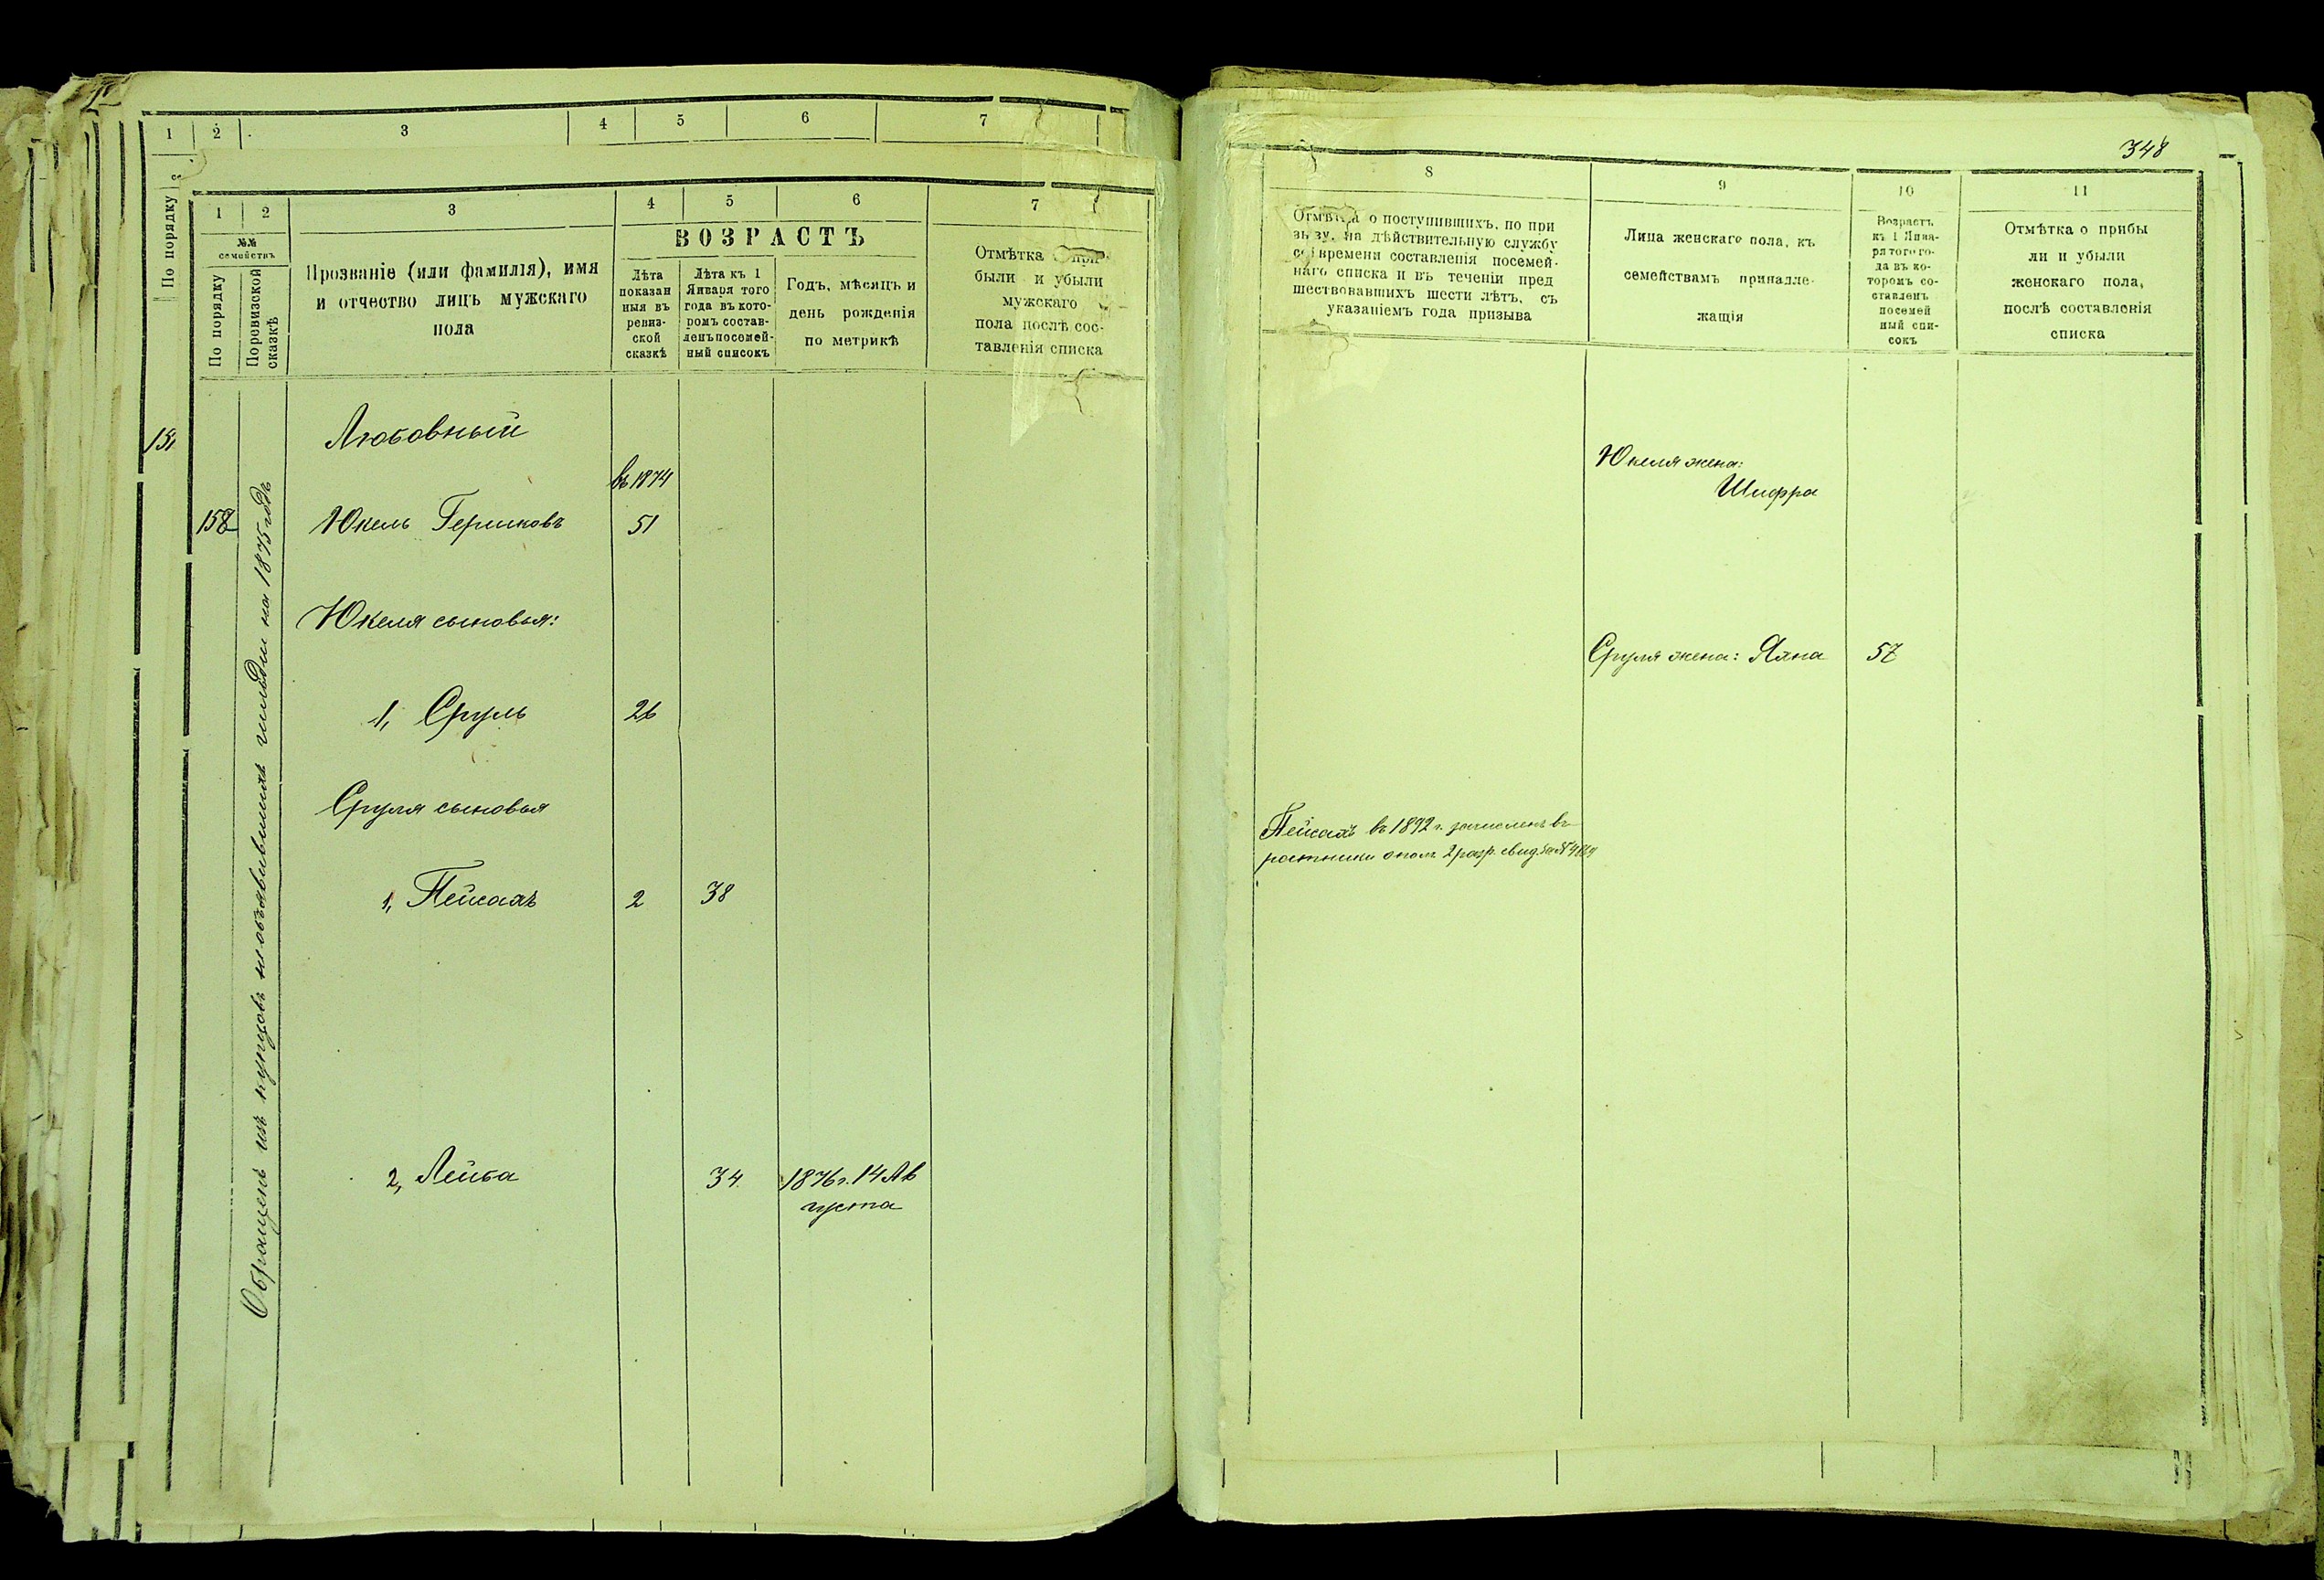 1 2 3 4 5 6 7
По порядку
1 2 3 4 5 6 7
№№
семействъ
По порядку
По ревизской
сказкѣ
Прозваніе (или фамилія), имя
и отчество лицъ мужскаго
пола
ВОЗРАСТЪ
Лѣта
показан
ныя въ
ревиз-
ской
сказкѣ
Лѣта къ 1
Января того
года въ кото-
ромъ состав-
ленъ посемей-
ный списокъ
Годъ, мѣсяцъ и
день рожденія
по метрикѣ
Отмѣтка о при-
были и убыли
мужскаго
пола послѣ сос-
тавленія списка
Любовный
въ 1874
158 Юкель Гершковъ 51
Юкеля сыновья:
1, Сруль 26
Сруля сыновья
1, Пейсахъ 2 38
2, Лейба 34 1876 г. 14 Ав
густа
Обращенъ изъ купцовъ необъявившихъ гильдіи на 1875 годъ
348
8 9 10 11
Отмѣтка о поступившихъ, по при
зыву, на дѣйствительную службу
со времени составленія посемей-
наго списка и въ теченіи пред
шествовавшихъ шести лѣтъ, съ
указаніемъ года призыва
Лица женскаго пола, къ
семействамъ принадле-
жащія
Возрастъ
къ 1 Янва-
ря того го-
да въ ко-
торомъ со-
ставленъ
посемей
ный спи-
сокъ
Отмѣтка о прибы
ли и убыли
женскаго пола,
послѣ составленія
списка
Юкеля жена:
Шифра
Сруля жена: Хана 57
Пейсахъ въ 1892 г. зачисленъ въ
ратники ополч. 2 разр. свид.